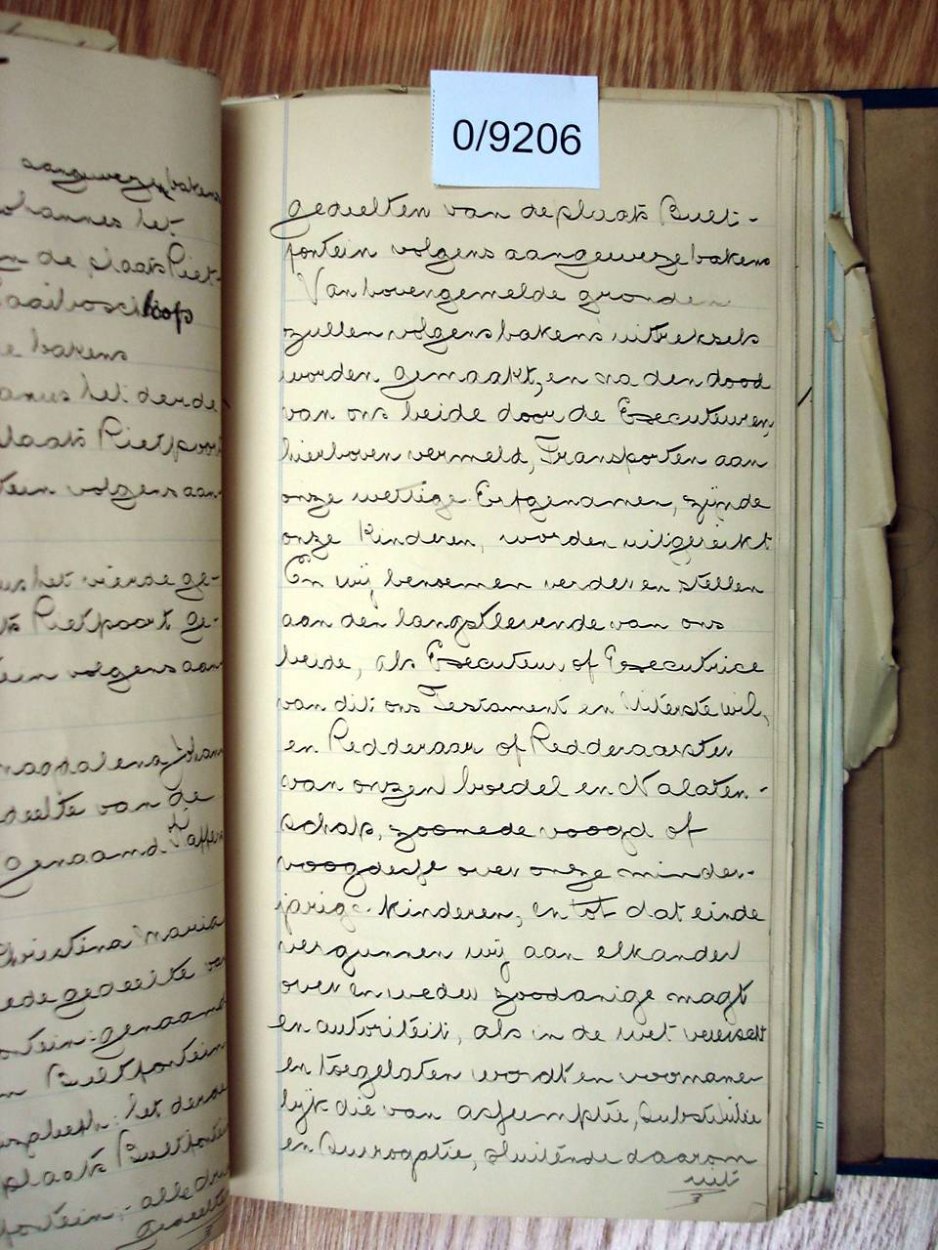 aangewezen bakens
ohannes het
n de plaats Riet-
aaibosch kop
e bakens
anus het derde
laats Rietpoort
tein volgens aan-
us het vierde ge-
ts Rietpoort ge-
ein volgens aan
magdalena Johan
deelte van de
genaamd
Christina Maria
ede gedeelte van
ontein: genaamd
n Bultfontein
het derde
plaats Bultfontei
fontein, - alle dri
Gedeelte
0/9206
gedeelten van de plaats Bult-
fontein volgens aangeweze bakens
Van bovengemelde gronden
zullen volgens bakens uitreksels
worden gemaakt, en na den dood
van ons beide door de Executeuren,
hierboven vermeld, Transporten aan
onze wettige Erfgenamen, zijnde
onze Kinderen, worden uitgereikt
En wij benoemen verder en stellen
aan den langstlevende van ons
beide, als Executeur of Executrice
van dit ons Testament en Uiterste wil,
en Redderaar of Redderaarster
van onzen boedel en Nalaten-
schap, zoomede voogd of
voogdesse over onze minder-
jarige kinderen, en tot dat einde
vergunnen wij aan elkander
over en weder zoodanige magt
en autoriteit, als in de wet vereischt
en toegelaten wordt en voorname-
lyk die van assumptie, Substitutie
en Surrogatie, sluitende daarom
uit